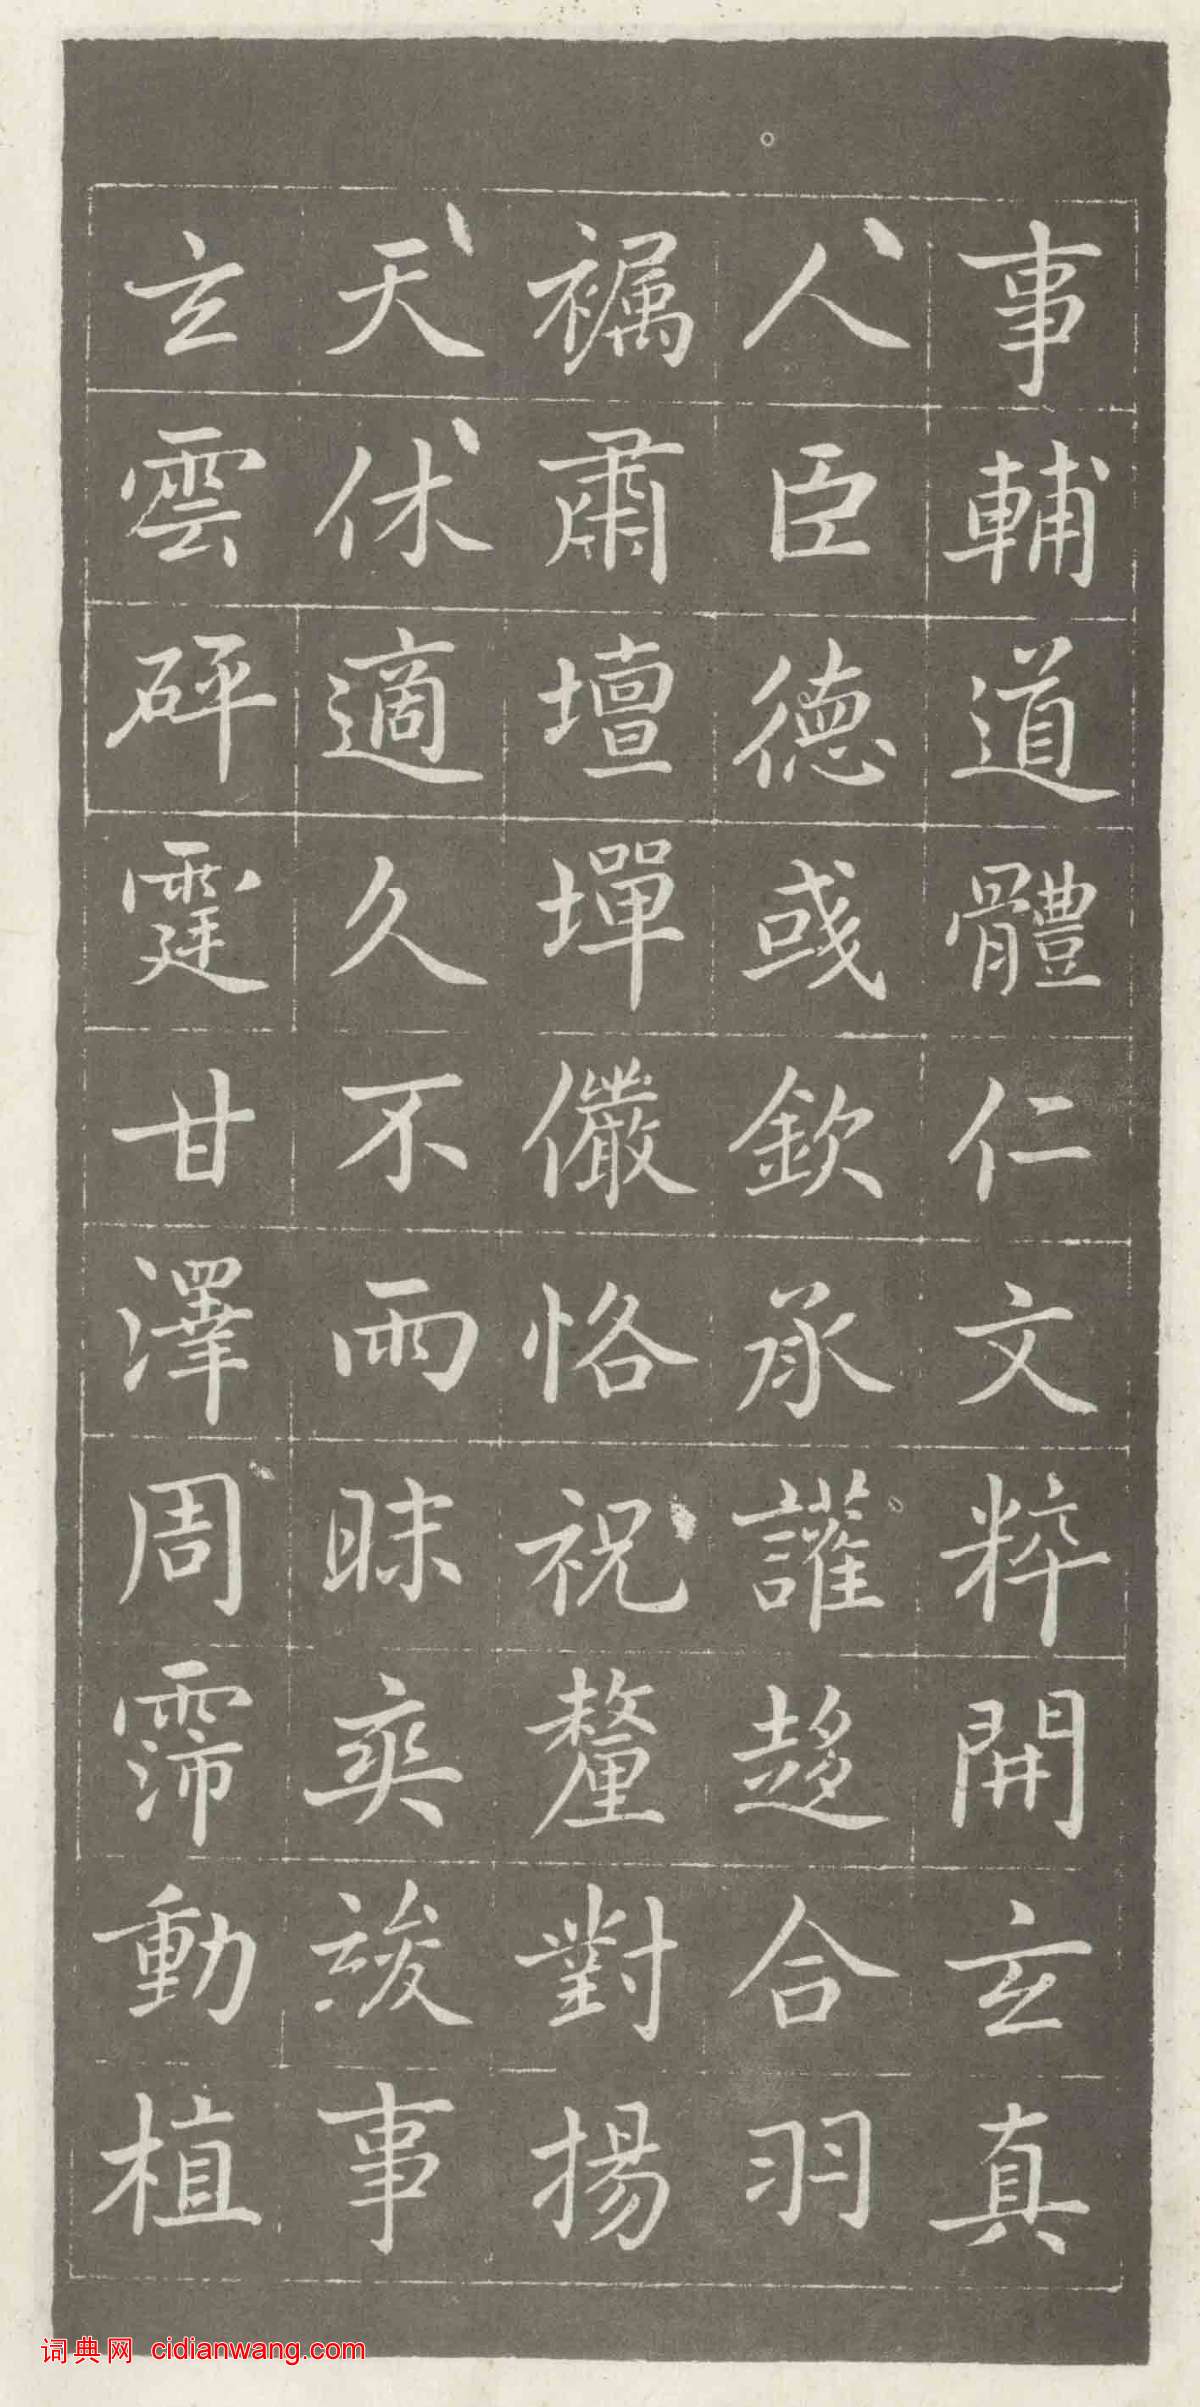 事輔道體仁文粹開玄真
人臣德彧欽承讙趍合羽
褵肅壇墠儼恪祝釐對揚
天休適久不雨昧爽竣事
玄雲砰霆甘澤周霈動植
词典网 cidianwang.com